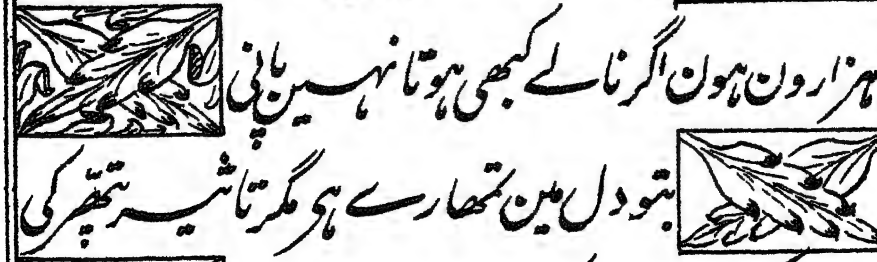 ہزارون ہون اگر نالے کبھی ہوتا نہین پانی
بتو دل مین تمھارے ہی مگر تاثیر پتھّر کی